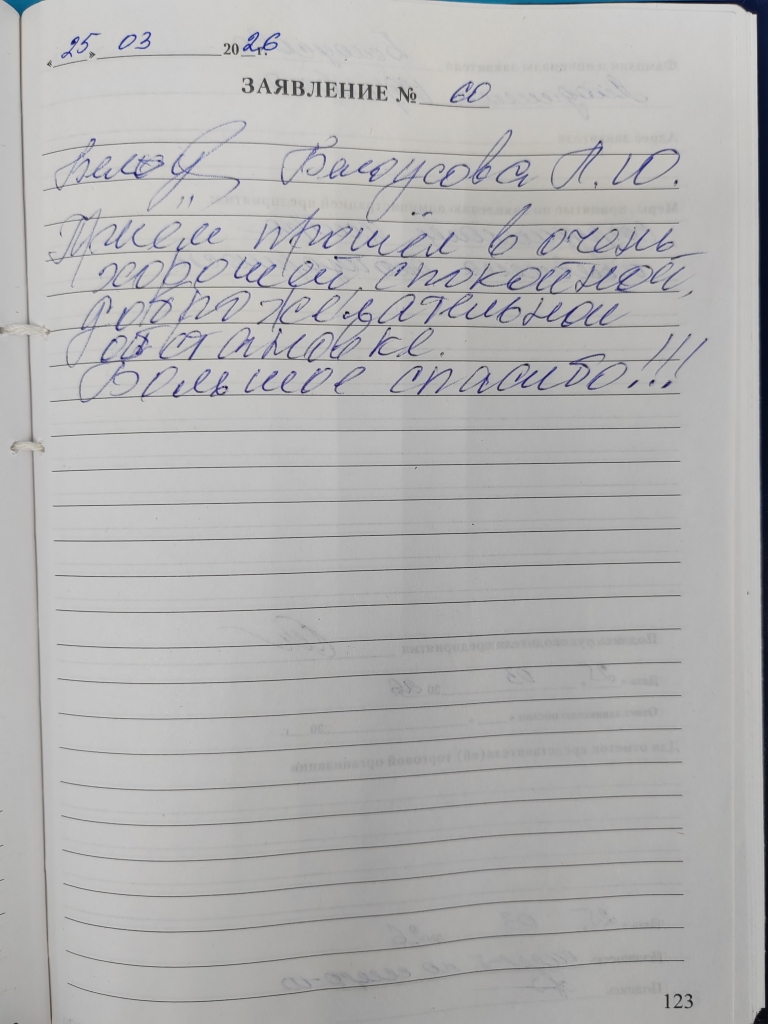 « 25 » 03 2026 г.
ЗАЯВЛЕНИЕ № 60
Белоусова Л. Ю.
Приём прошёл в очень
хорошей, спокойной,
доброжелательной
обстановке.
Большое спасибо!!!
123